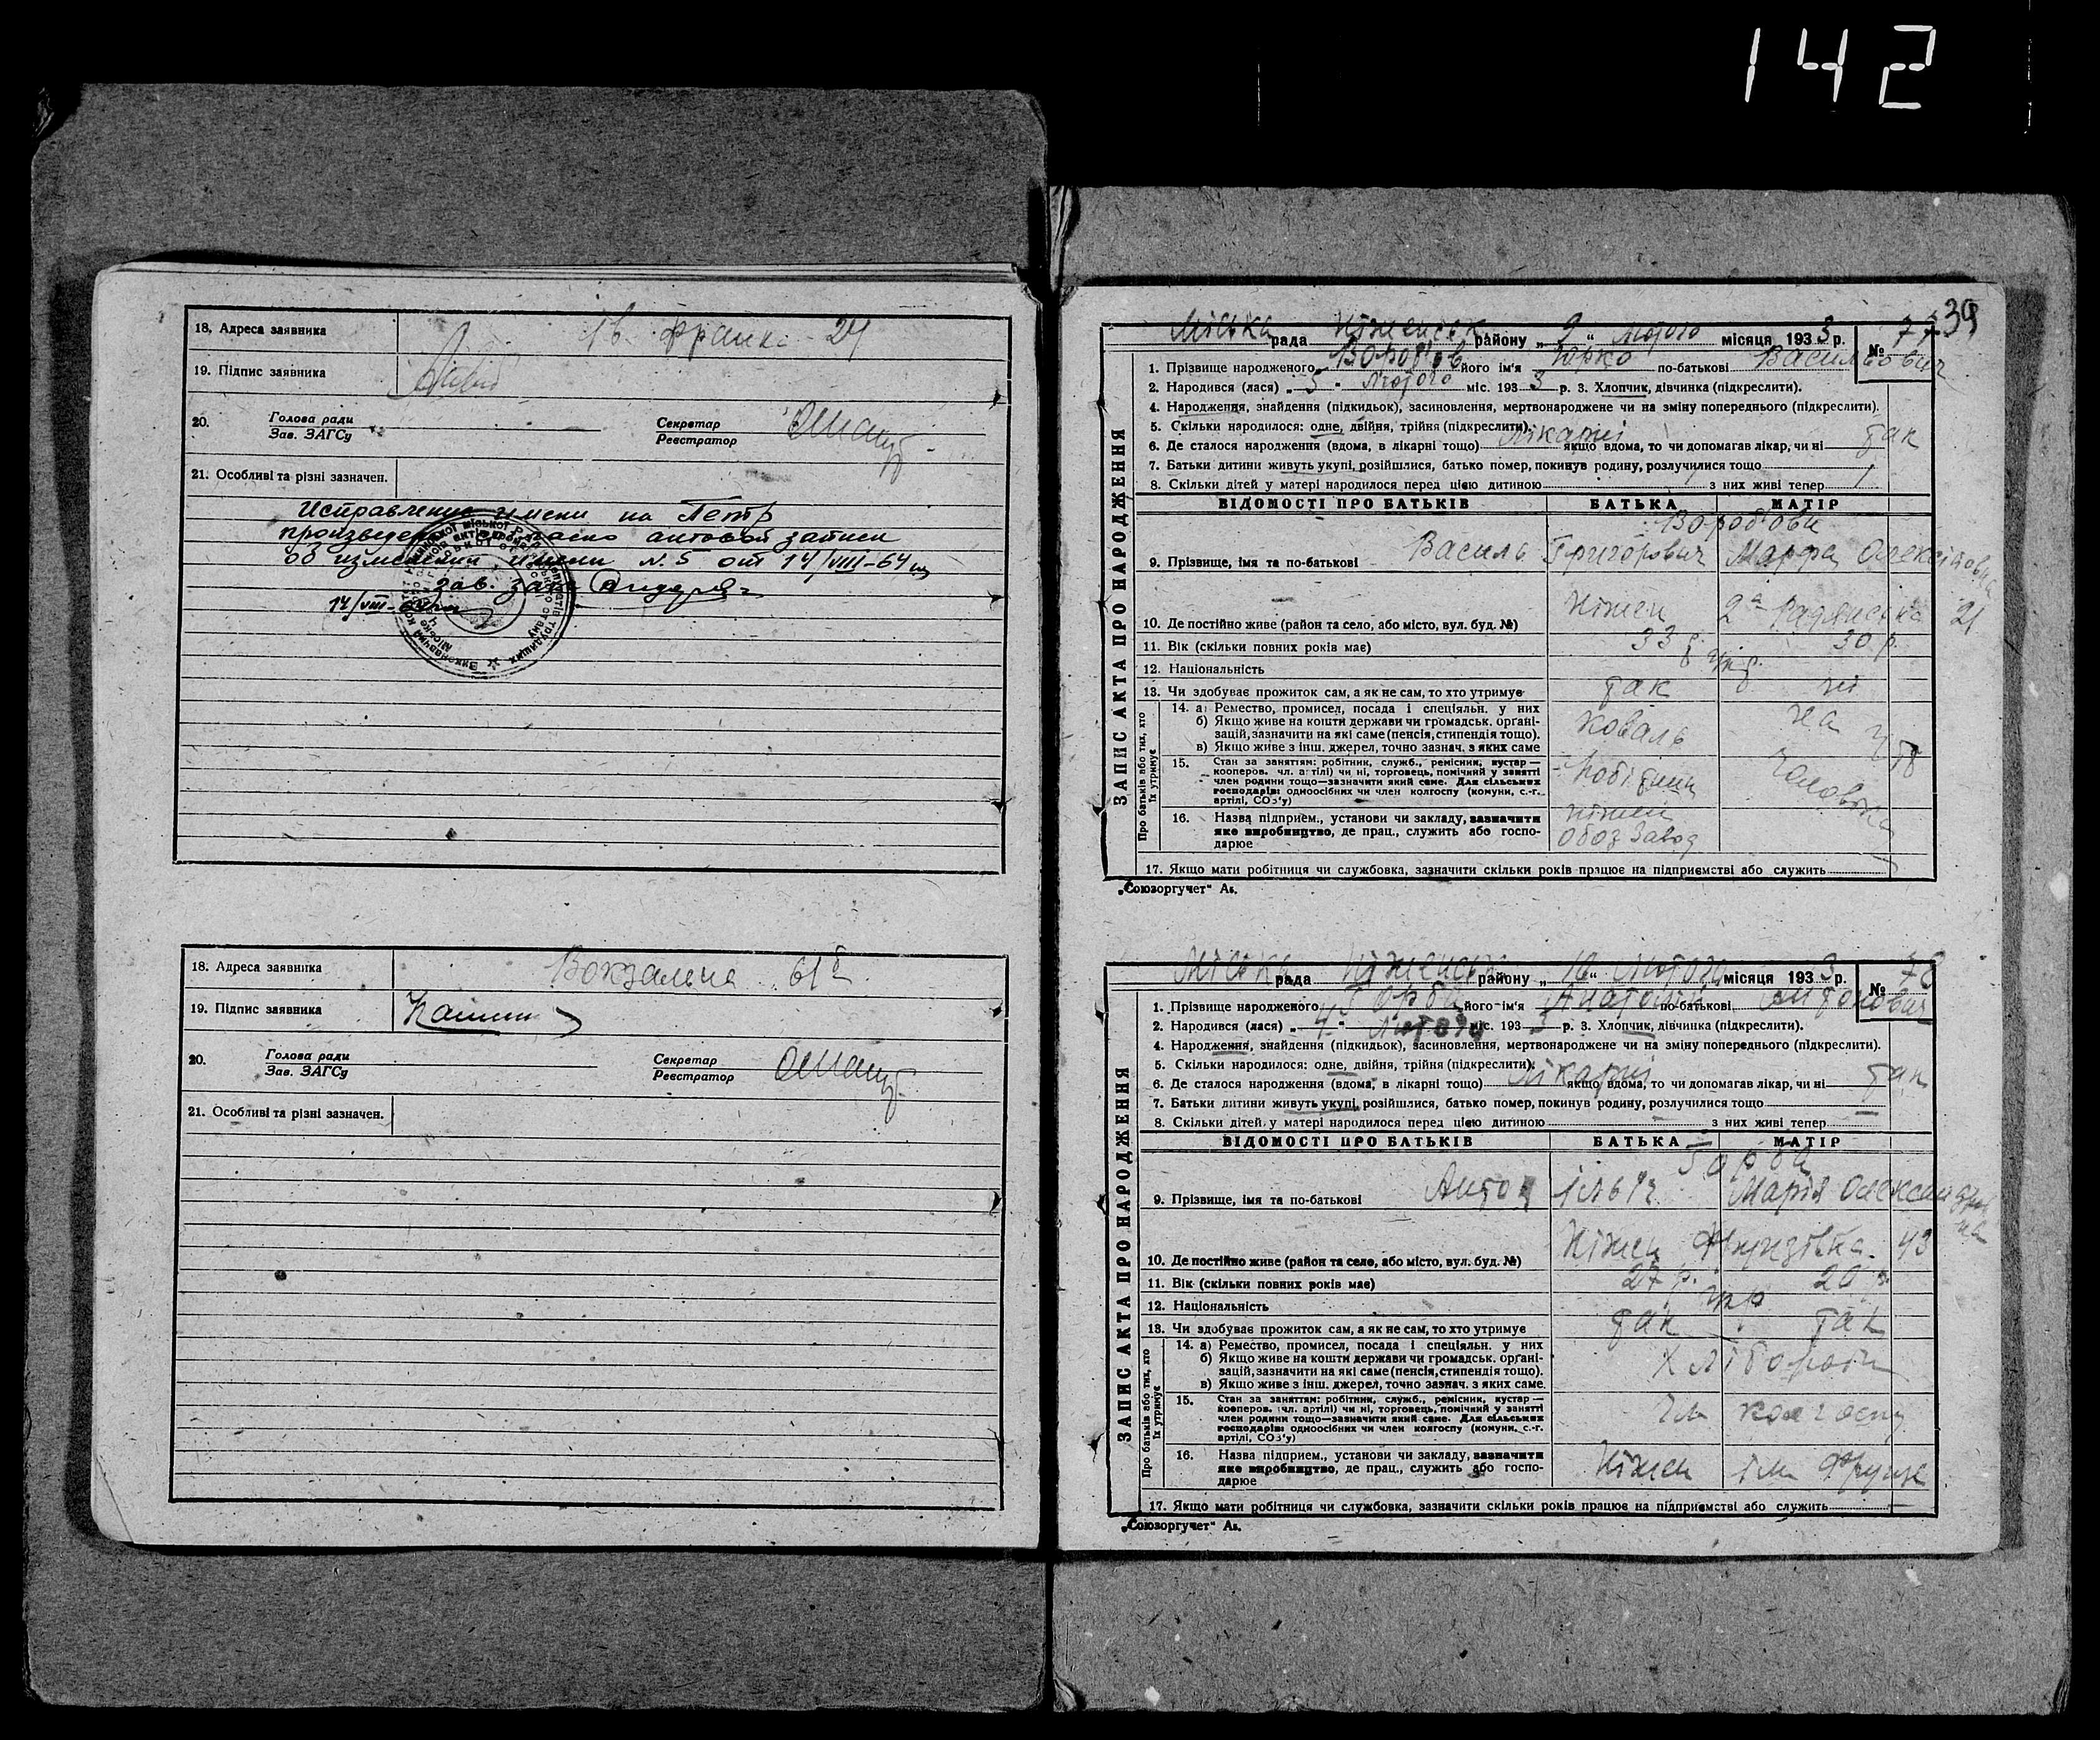 142
18. Адреса заявника Ів. Франка 24
19. Підпис заявника
20. Голова ради Секретар
Зав. ЗАГСу Реєстратор
21. Особливі та різні зазначен.
Исправление имени на Петр
произведено актовой записи
об изменении имени N. 5 от 14/VIII-64
зав. загс
14/VIII-64
18. Адреса заявника Вокзальна 61
19. Підпис заявника
20. Голова ради Секретар
Зав. ЗАГСу Реєстратор
21. Особливі та різні зазначен.
39
Міська рада Ніженськ району „ 9 “ Лютого місяця 193 3 р. № 77
1. Прізвище народженого Воробйов його ім'я Юрко по-батькові Васильович
2. Народився (лася) „ 5 " Лютого міс. 193 3 р. 3. Хлопчик, дівчинка (підкреслити).
4. Народження, знайдення (підкидьок), засиновлення, мертвонароджене чи на зміну попереднього (підкреслити).
5. Скільки народилося: одне, двійня, трійня (підкреслити).
6. Де сталося народження (вдома, в лікарні тощо) Лікарні якщо вдома, то чи допомагав лікар, чи ні так
7. Батьки дитини живуть укупі, розійшлися, батько помер, покинув родину, розлучилися тощо
8. Скільки дітей у матері народилося перед цією дитиною з них живі тепер
ЗАПИС АКТА ПРО НАРОДЖЕННЯ
ВІДОМОСТІ ПРО БАТЬКІВ БАТЬКА МАТІР
Воробйови
9. Прізвище, імя та по-батькові Василь Григорович Марфа Олексіївна
10. Де постійно живе (район та село, або місто, вул. буд. №) Ніжен 2а Радянська 21
11. Вік (скільки повних років має) 33 р. 30 р.
12. Національність укр.
13. Чи здобуває прожиток сам, а як не сам, то хто утримує так ні
Про батьків або тих, хто їх утримує
14. а) Ремество, промисел, посада і спеціяльн. у них
б) Якщо живе на кошти держави чи громадськ. органі-
зацій, зазначити на які саме (пенсія, стипендія тощо).
в) Якщо живе з інш. джерел, точно зазнач. з яких саме
коваль на
15. Стан за заняттям: робітник, служб., ремісник, кустар —
кооперов. чл. артілі) чи ні, торговець, помічний у занятті
член родини тощо—зазначити який саме. Для сільських
господарів: одноосібних чи член колгоспу (комуни, с.-г.
артілі, СОЗ'у)
робітник чоловіка
16. Назва підприєм., установи чи закладу, зазначити
яке виробництво, де прац., служить або госпо-
дарює
Ніжен
Обоз Завод
17. Якщо мати робітниця чи службовка, зазначити скільки років працює на підприємстві або служить
„Союзоргучет“ Ав.
Міська рада Ніженськ району „ 10 “ Лютого місяця 193 3 р. № 78
1. Прізвище народженого Горба його ім'я Анатолій по-батькові Антонович
2. Народився (лася) „ 4 " Лютого міс. 193 3 р. 3. Хлопчик, дівчинка (підкреслити).
4. Народження, знайдення (підкидьок), засиновлення, мертвонароджене чи на зміну попереднього (підкреслити).
5. Скільки народилося: одне, двійня, трійня (підкреслити).
6. Де сталося народження (вдома, в лікарні тощо) Лікарні якщо вдома, то чи допомагав лікар, чи ні так
7. Батьки дитини живуть укупі, розійшлися, батько помер, покинув родину, розлучилися тощо
8. Скільки дітей у матері народилося перед цією дитиною з них живі тепер
ЗАПИС АКТА ПРО НАРОДЖЕННЯ
ВІДОМОСТІ ПРО БАТЬКІВ БАТЬКА МАТІР
Горба
9. Прізвище, імя та по-батькові Антон Ільїч Марія Олександрівна
10. Де постійно живе (район та село, або місто, вул. буд. №) Ніжен Фрунзівка 43
11. Вік (скільки повних років має) 27 р. 20
12. Національність укр
13. Чи здобуває прожиток сам, а як не сам, то хто утримує так так
Про батьків або тих, хто їх утримує
14. а) Ремество, промисел, посада і спеціяльн. у них
б) Якщо живе на кошти держави чи громадськ. органі-
зацій, зазначити на які саме (пенсія, стипендія тощо).
в) Якщо живе з інш. джерел, точно зазнач. з яких саме.
Хлібороби
15. Стан за заняттям: робітник, служб., ремісник, кустар —
кооперов. чл. артілі) чи ні, торговець, помічний у занятті
член родини тощо—зазначити який саме. Для сільських
господарів: одноосібних чи член колгоспу (комуни, с.-г.
артілі, СОЗ'у)
чл колгоспу
16. Назва підприєм., установи чи закладу, зазначити
яке виробництво, де прац., служить або госпо-
дарює
Ніжен ім Фрунзе
17. Якщо мати робітниця чи службовка, зазначити скільки років працює на підприємстві або служить
„Союзоргучет“ Ав.